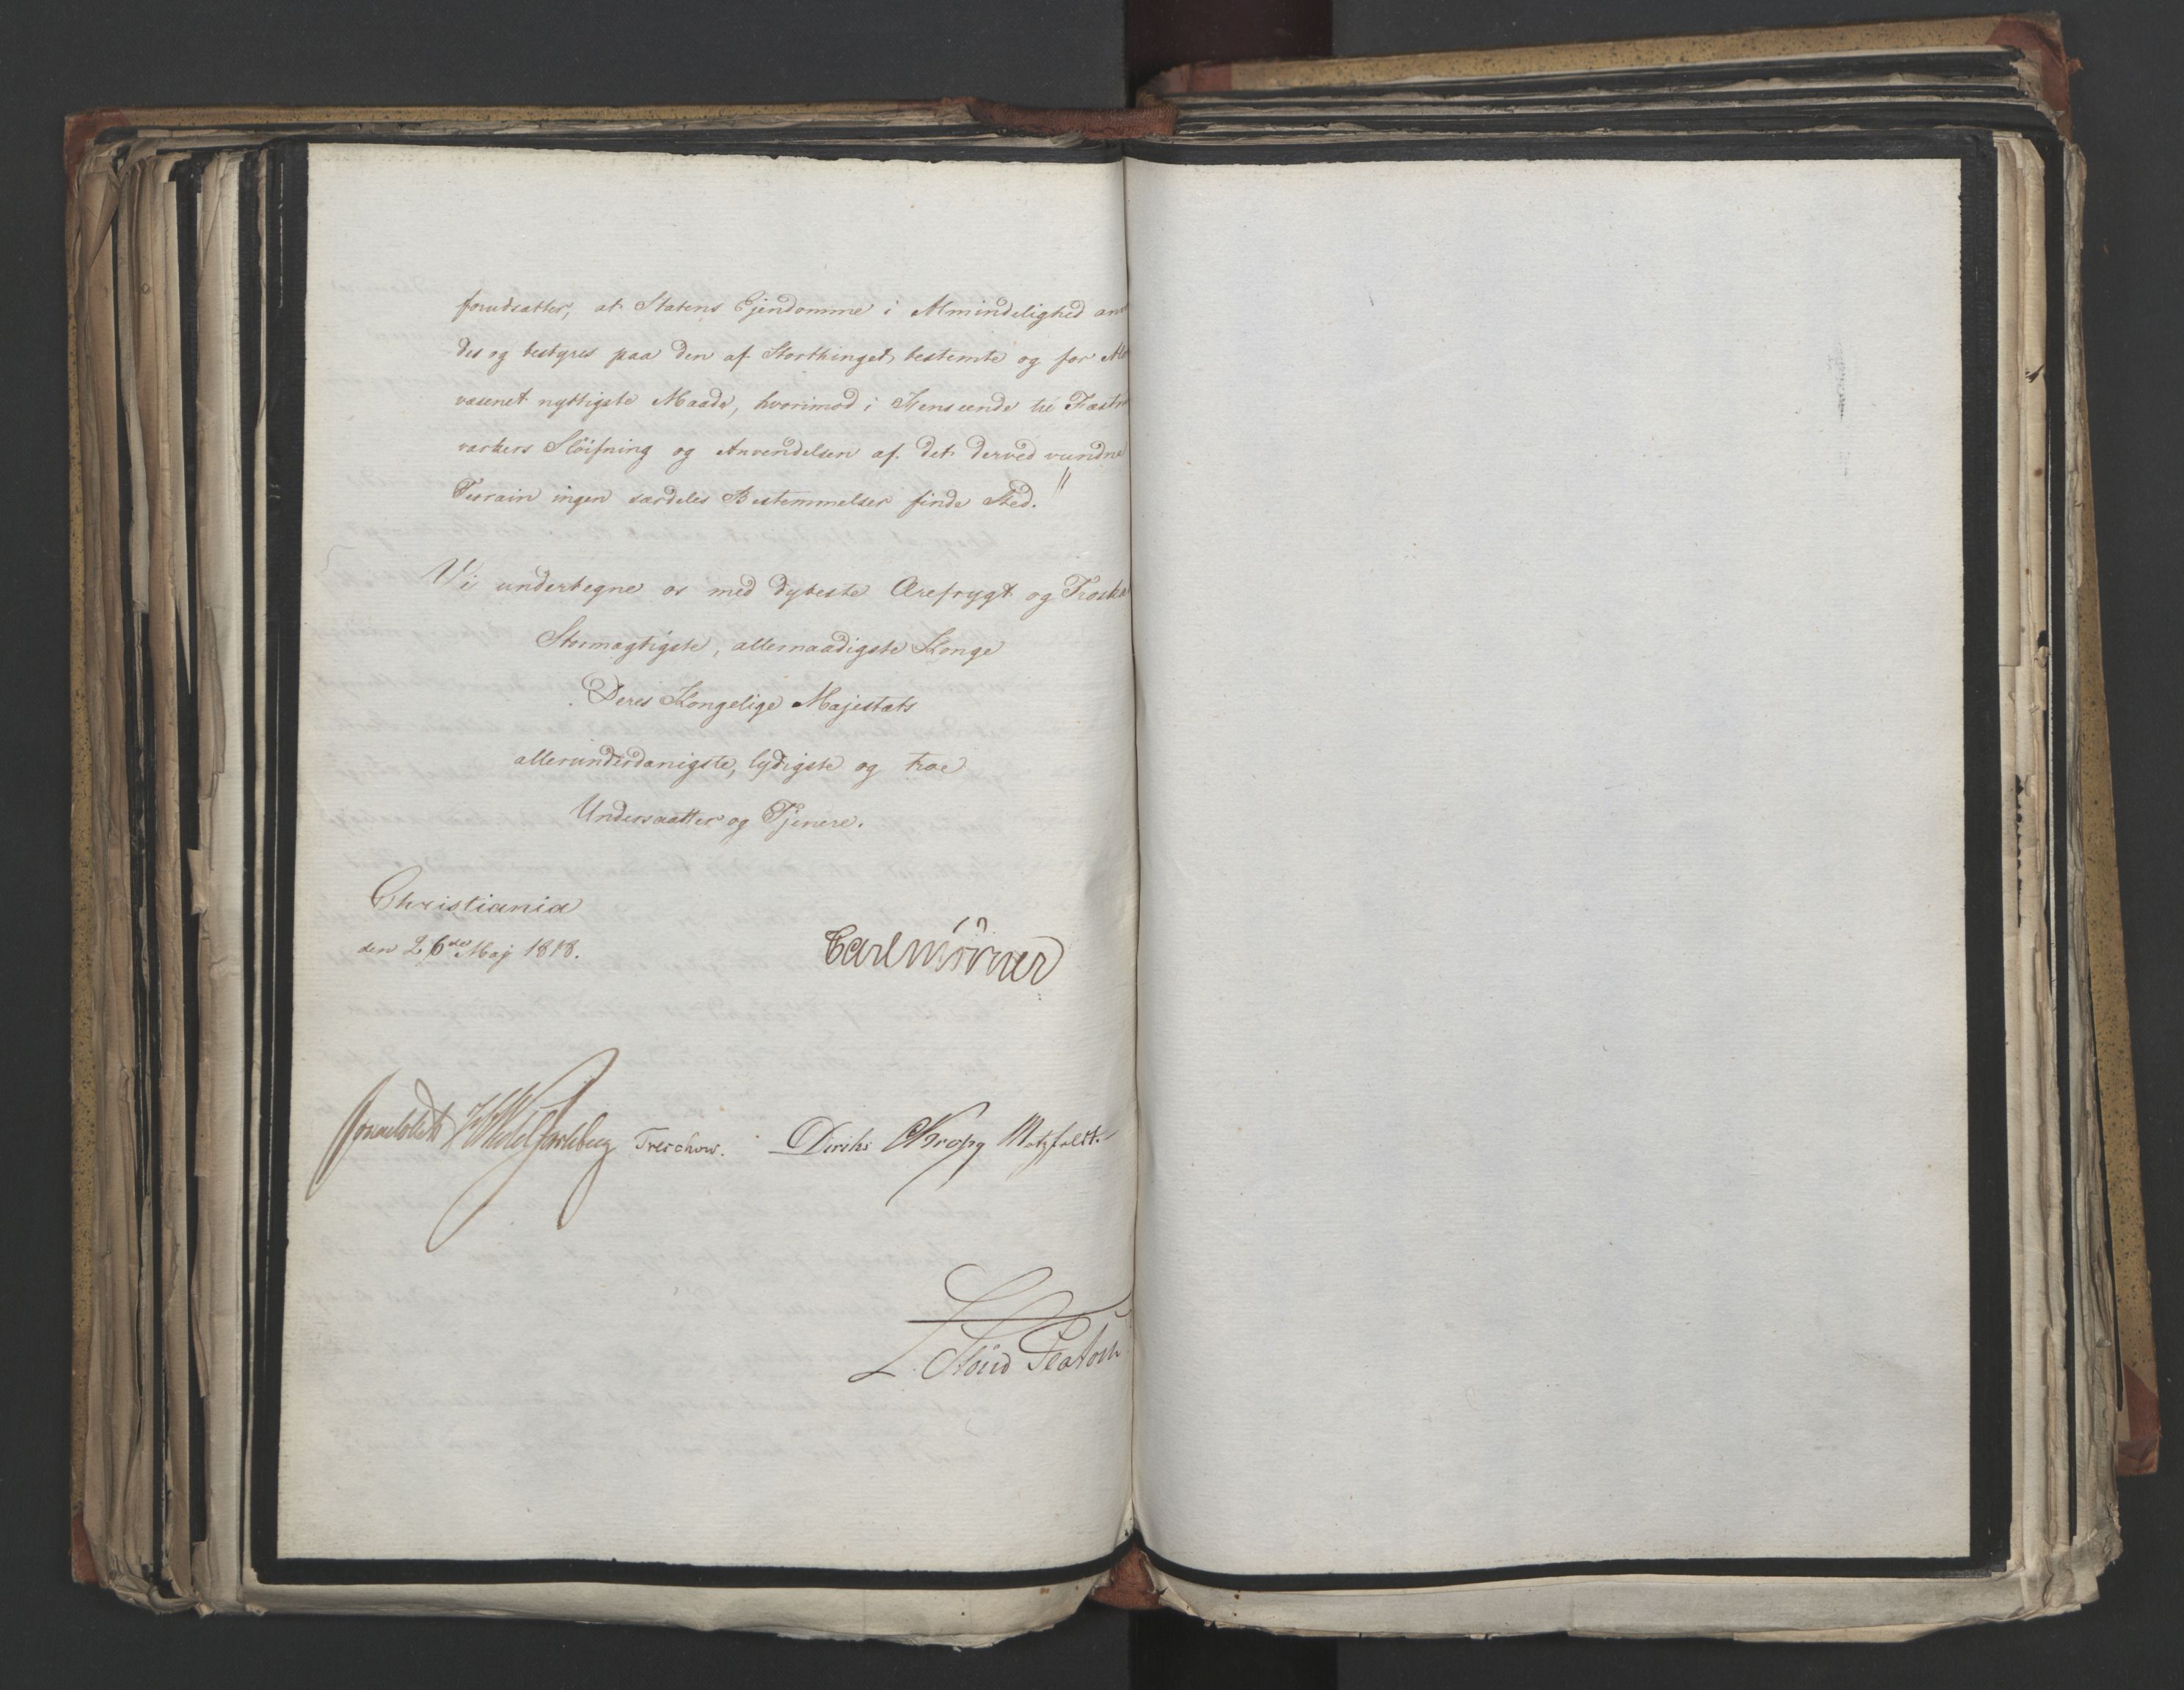 forudsætter, at Statens Ejendomme i Almindelighed an
des og bestyres paa den af Storthinget bestemte og for Al
væsenet nyttigste Maade, hvorimod i Henseende til Fæstn
værkers Sløifning og Anvendelsen af det derved vundne
Terrain ingen særdeles Bestemmelser finde Sted."
Vi undertegne os med dybeste Ærefrygt og Troska
Stormægtigste, allernaadigste Konge
Deres Kongelige Majestæts
allerunderdanigste, lydigste og troe
Undersaatter og Tjenere.
Christiania
den 26de Maj 1818.
Carl Mörner
Sommerhielm HWedel Jarlsberg Treschow. Diriks Krogg Motzfeldt.
L. Stoud Platou